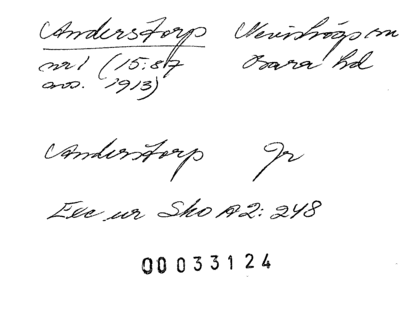 Anderstorp Nevishögs sn
nr 1 (15:87 Bara hd
avs. 1913)
Anderstorp Jr
Exc ur Sko A2: 248
00033124